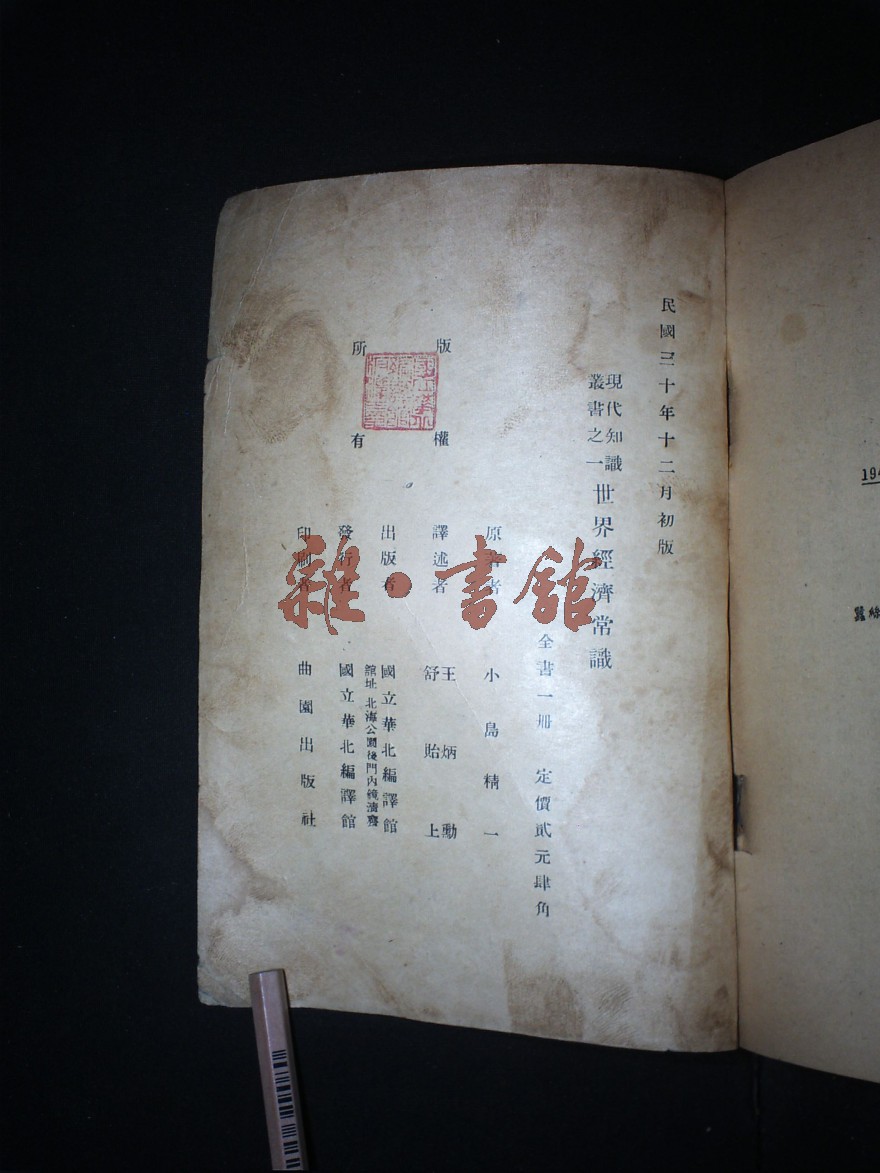 民國三十年十二月初版
現代知識
叢書之一
世界經濟常識
全書一冊 定價貳元肆角
原著者 小島精一
譯述者 王炳勳
舒貽上
出版者 國立華北編譯館
館址 北海公園後門內鏡清齋
發行者 國立華北編譯館
印刷者 曲園出版社
版權
所有
國立華北編譯館
雜·書館
194
蠶絲